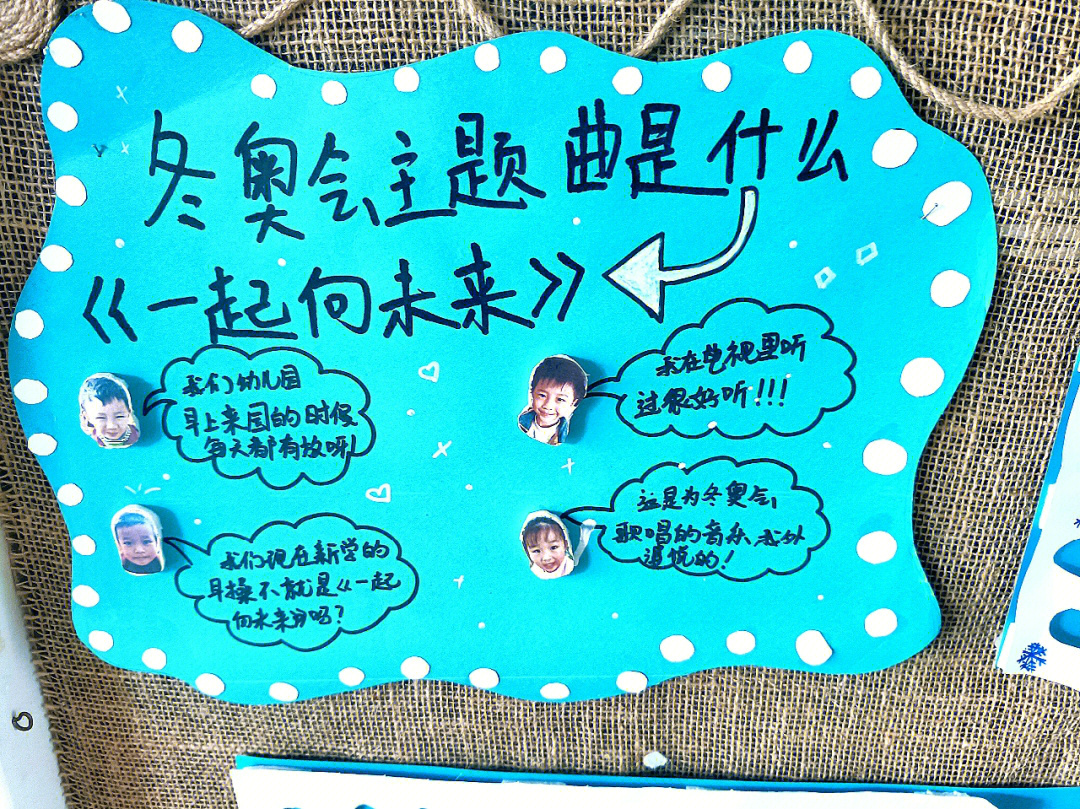 冬奥会主题曲是什么
《一起向未来》
我们幼儿园
早上来园的时候
每天都有放呀!
我在电视里听
过很好听!!!
我们现在新学的
早操不就是《一起
向未来》吗?
这是为冬奥会
歌唱的音乐,我外
道说的!